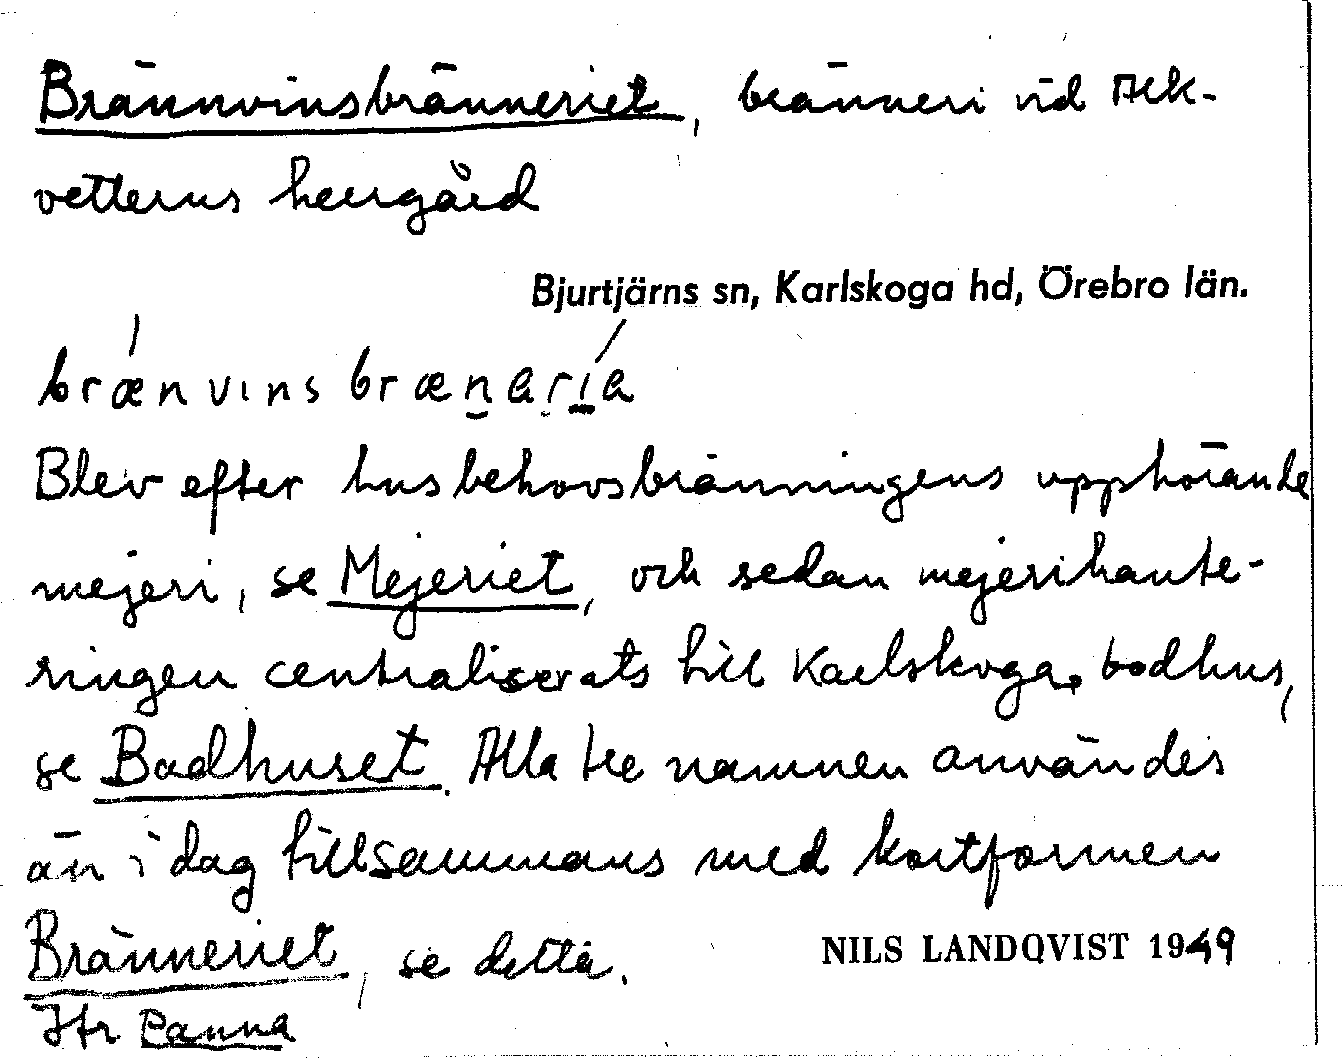 Brännvinsbränneriet, bränneri vid Alk-
vetterns herrgård
Bjurtjärns sn, Karlskoga hd, Örebro län.
brænvinsbrænaria
Blev efter husbehovsbränningens upphörande
mejeri, se Mejeriet, och sedan mejerihante-
ringen centraliserats till Karlskoga, badhus,
se Badhuset. Alla tre namnen användes
än i dag tillsammans med kortformen
Bränneriet, se detta.
NILS LANDQVIST 1949
Jfr Panna